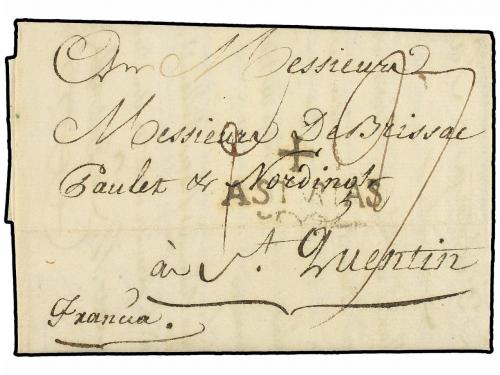 A Messieurs
Messieurs De Brissac
Paulet & Nordingh
ASTURIAS
à St. Quentin
Francia.